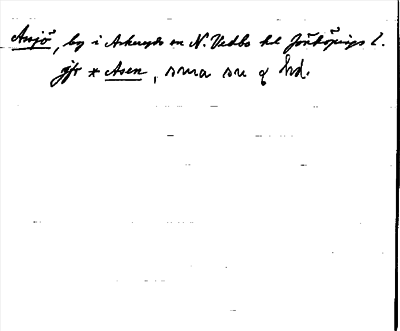 Assjö, by i Askeryds sn N. Vedbo hd Jönköpings l.
jfr * Asen, sma sn o hd.